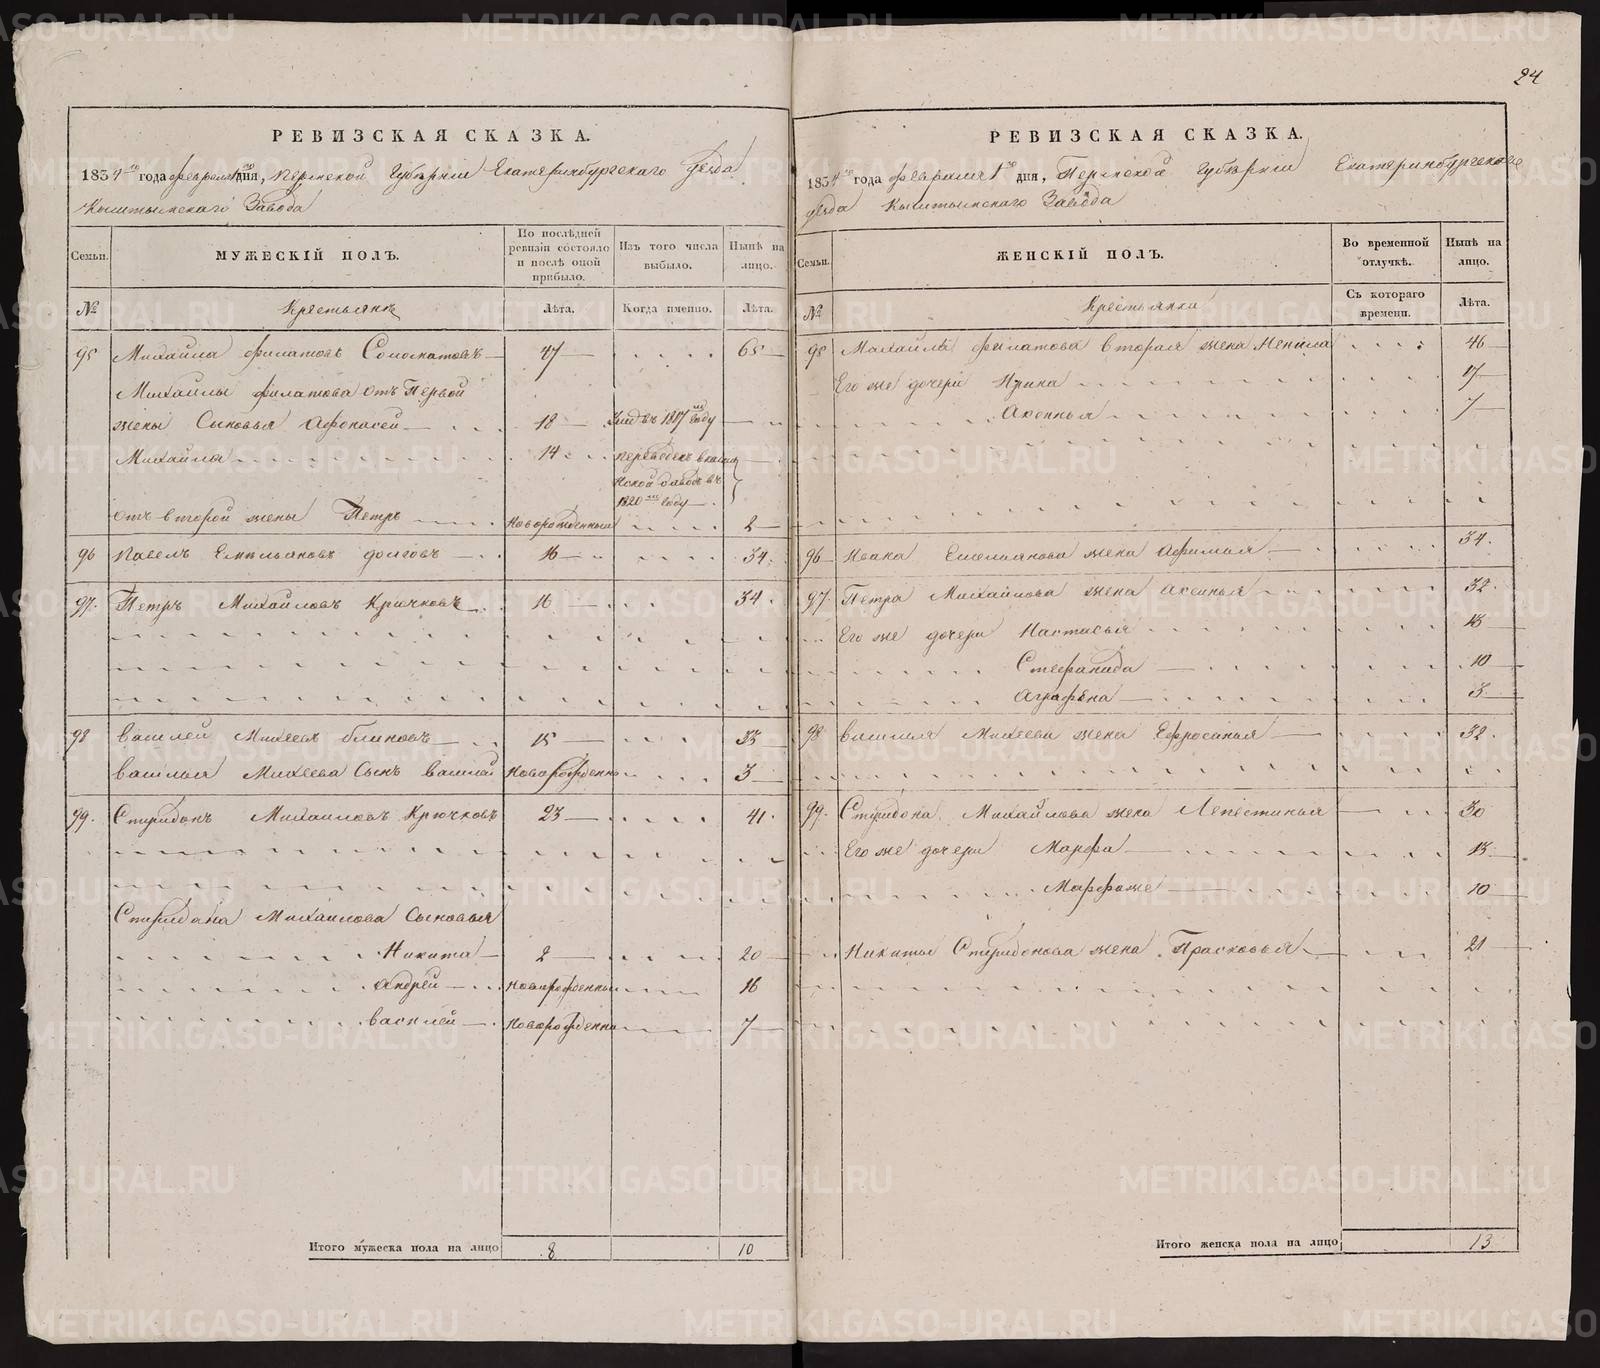 24
РЕВИЗСКАЯ СКАЗКА.
1834 го года февраля 1 го дня, Пермской Губерніи Екатеринбургскаго уезда
Кыштымскаго Завода
Семьи.
МУЖЕСКІЙ ПОЛЪ.
По послѣдней ревизіи состояло и послѣ оной прибыло.
Изъ того числа выбыло.
Нынѣ на лицо.
№
Крестьянъ
Лѣта.
Когда именно.
Лѣта.
95 Михайла Филатовъ Соломатовъ 47 65
Михайлы Филатова отъ Первой
жены Сыновья Афонасей 18 въ 1817 году
Михайла 14 переведенъ в
Завод въ
1820 году
отъ второй жены Петръ Новорожденный 2
96 Павелъ Емельяновъ Долговъ 16 34
97. Петръ Михайловъ Крючковъ 16 34
98 Василей Михеевъ Блиновъ 15 33
Василья Михеева Сынъ Василей Новорожденны 3
99. Спиридонъ Михайловъ Крючковъ 23 41
Спиридона Михайлова Сыновья
Никита 2 20
Андрей Новорожденный 16
Василей Новорожденны 7
Итого мужеска пола на лицо 8 10
РЕВИЗСКАЯ СКАЗКА.
1834 го года февраля 1 го дня, Пермской Губерніи Екатеринбургскаго
уезда Кыштымскаго Завода
Семьи.
ЖЕНСКІЙ ПОЛЪ.
Во временной отлучкѣ.
Нынѣ на лицо.
№
Крестьянки
Съ котораго времени.
Лѣта.
95 Михайлы Филатова вторая жена Ненила 46
Его же дочери Ирина 17
Аксинья 7
96 Емельянова жена Афимья 34
97 Петра Михайлова жена Аксинья 32
Его же дочери Настасья 13
Стефанида 10
Аграфена 3
98 Василья Михеева жена Ефросинья 32
99. Спиридона Михайлова жена 30
Его же дочери Марфа 13
Марфа же 10
Никиты Спиридонова жена Прасковья 21
Итого женска пола на лицо 13
METRIKI.GASO-URAL.RU